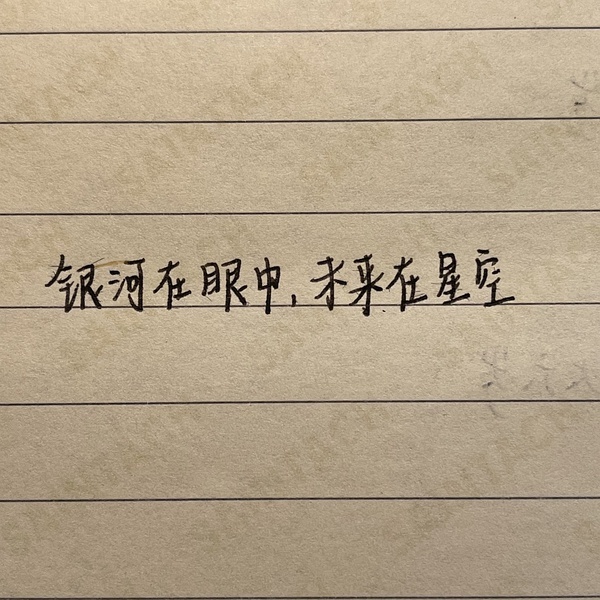 银河在眼中，未来在星空